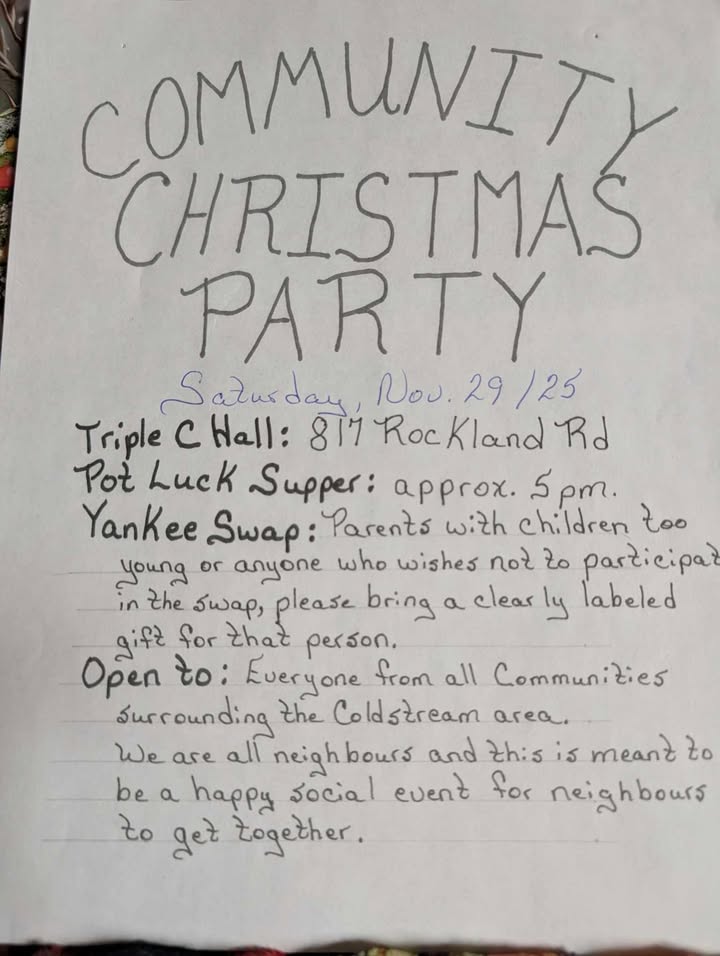 COMMUNITY
CHRISTMAS
PARTY
Saturday, Nov. 29/25
Triple C Hall: 817 Rockland Rd
Pot Luck Supper: approx. 5pm.
Yankee Swap: Parents with children too
young or anyone who wishes not to participat
in the swap, please bring a clearly labeled
gift for that person.
Open to: Everyone from all Communities
surrounding the Coldstream area.
We are all neighbours and this is meant to
be a happy social event for neighbours
to get together.